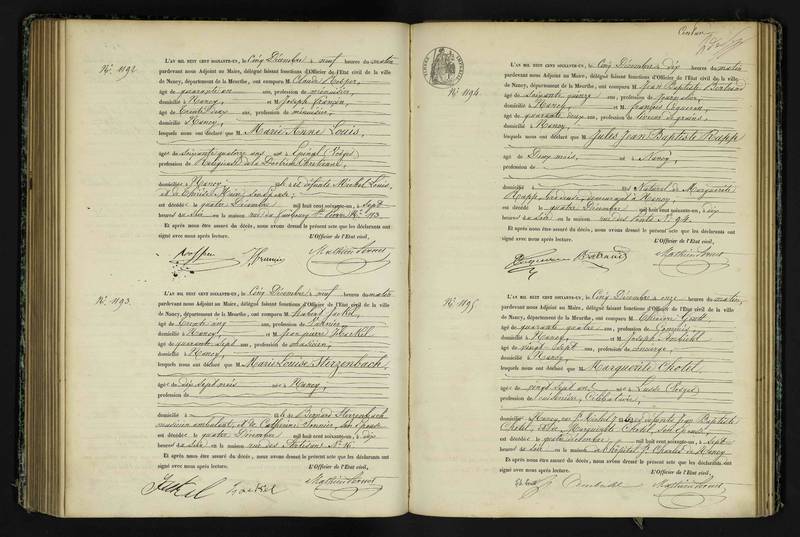 N°. 1192.
L'AN MIL HUIT CENT SOIXANTE-UN, le Cinq Décembre à neuf heures du matin
pardevant nous Adjoint au Maire, délégué faisant fonctions d'Officier de l'Etat civil de la ville
de Nancy, département de la Meurthe, ont comparu M. Claude
âgé de quarante un ans, profession de menuisier,
domicilié à Nancy, et Joseph
âgé de trente deux ans, profession de menuisier,
domicilié à Nancy,
lesquels nous ont déclaré que M. Marie Anne Louis,
âgée de soixante quatorze ans née à Epinal (Vosges)
profession de Religieuse de la Doctrine Chrétienne,
domiciliée à Nancy, fille de défunts Michel Louis,
et de
est décédée le quatre Décembre mil huit cent soixante-un, à sept
heures du soir en la maison rue du faubourg St. Pierre N°. 113.
Et après nous être assuré du décès, nous avons dressé le présent acte que les déclarants ont
signé avec nous après lecture. L'Officier de l'Etat civil,
N°. 1193.
L'AN MIL HUIT CENT SOIXANTE-UN, le Cinq Décembre à neuf heures du matin
pardevant nous Adjoint au Maire, délégué faisant fonctions d'Officier de l'Etat civil de la ville
de Nancy, département de la Meurthe, ont comparu M. Hubert Jackel,
âgé de trente cinq ans, profession de
domicilié à Nancy, et Jean pierre
âgé de quarante sept ans, profession de musicien,
domicilié à Nancy,
lesquels nous ont déclaré que M. Marie Louise Sterzenbach,
âgée de dix sept mois née à Nancy,
profession de
domiciliée à fille de Bernard Sterzenbach
musicien ambulant, et de Catherine Sonnier, son épouse
est décédée le quatre Décembre mil huit cent soixante-un, à dix
heures du soir en la maison rue des Artisans N°. 16
Et après nous être assuré du décès, nous avons dressé le présent acte que les déclarants ont
signé avec nous après lecture. L'Officier de l'Etat civil,
Jackel
N°. 1194.
L'AN MIL HUIT CENT SOIXANTE-UN, le Cinq Décembre à dix heures du matin
pardevant nous Adjoint au Maire, délégué faisant fonctions d'Officier de l'Etat civil de la ville
de Nancy, département de la Meurthe, ont comparu M. Jean Baptiste Bertrand
âgé de soixante quinze ans, profession de journalier,
domicilié à Nancy, et François
âgé de quarante deux ans, profession de
domicilié à Nancy,
lesquels nous ont déclaré que M. Jules Jean Baptiste Rapp
âgé de Deux mois, né à Nancy,
profession de
domicilié à fils Naturel de Marguerite
Rapp brodeuse, demeurant à Nancy,
est décédé le quatre Décembre mil huit cent soixante-un, à dix
heures du soir en la maison rue des Ponts N°. 94.
Et après nous être assuré du décès, nous avons dressé le présent acte que les déclarants ont
signé avec nous après lecture. L'Officier de l'Etat civil,
Bertrand
N°. 1195
L'AN MIL HUIT CENT SOIXANTE-UN, le Cinq Décembre à onze heures du matin,
pardevant nous Adjoint au Maire, délégué faisant fonctions d'Officier de l'Etat civil de la ville
de Nancy, département de la Meurthe, ont comparu M.
âgé de quarante quatre ans, profession de Commis,
domicilié à Nancy, et Joseph
âgé de vingt sept ans, profession de concierge,
domicilié à Nancy,
lesquels nous ont déclaré que M. Marguerite Chotel,
âgée de vingt sept ans, née à Lusse (Vosges)
profession de cuisinière, Célibataire,
domiciliée à Nancy, rue St. Michel fille de défunts Jean Baptiste
Chotel, et de Marguerite Chotel, son épouse
est décédée le quatre Décembre mil huit cent soixante-un, à sept
heures du soir en la maison à l'hôpital St. Charles de Nancy
Et après nous être assuré du décès, nous avons dressé le présent acte que les déclarants ont
signé avec nous après lecture. L'Officier de l'Etat civil,